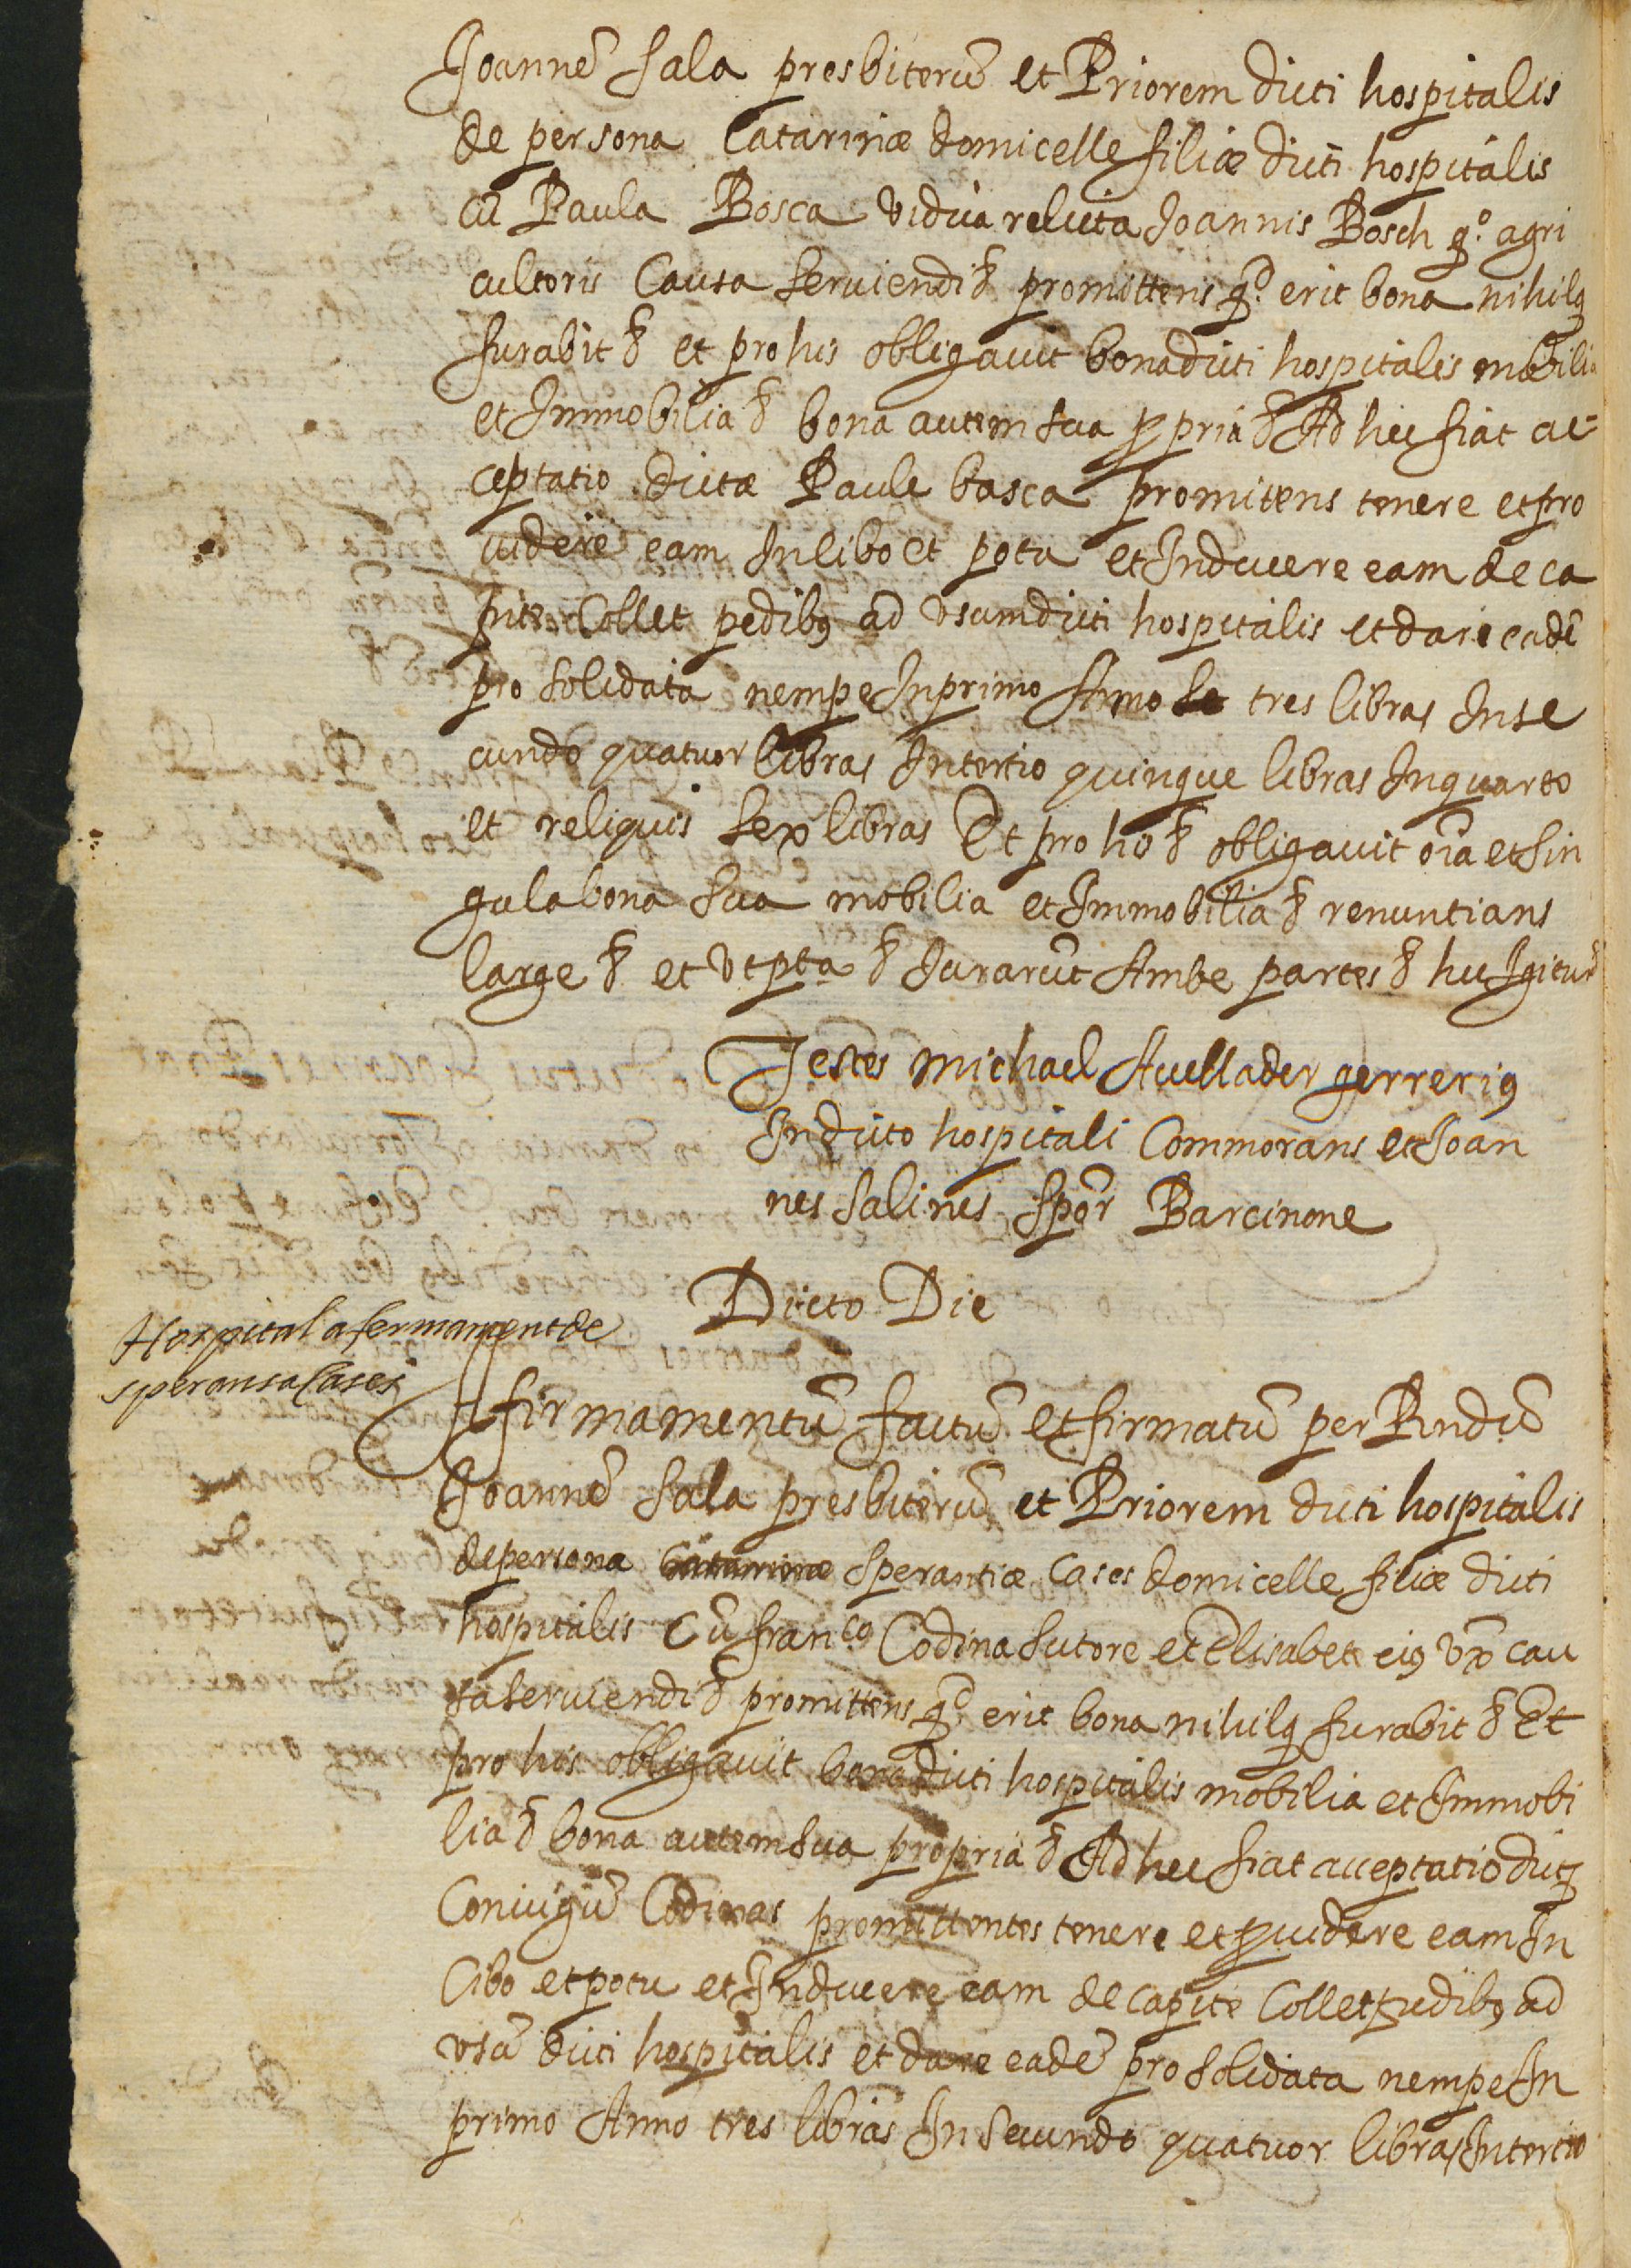 Joannē Sala presbiterū et Priorem dicti hospitalis
de persona Catarinæ domicelle filiæ dicti hospitalis
cū Paula Bosca vidua relicta Joannis Bosch q.º agri
cultoris Causa serviendi & promittens q.d erit bona nihilq
furabit & et pro his obligavit bona dicti hospitalis mobilia
et Immobilia & bona autem sua ppria & Ad hec fiat ac-
ceptatio dictæ Paule basca promitens tenere et pro
videre eam In cibo et potu et Induere eam de ca
pite Collet pedibȝ ad vsum dicti hospitalis et dare eadē
pro solidata nempe In primo Anno tres libras In se
cundo quatuor libras In tertio quinque libras In quarto
et reliquis sex libras Et pro his & obligavit oīa et sin
gula bona sua mobilia et Immobilia & renuntians
large & et vt pta & Jurarūt Ambe partes & hec Igitur &
Testes Michael Avellader gerrerius
In dicto hospitali Commorans et Joan
nes Salines Spor Barcinone
Dicto Die
Hospital afermament de
speransa Cases
Affirmamentū factū et firmatū per Rndū
Joannē Sala presbiterū et Priorem dicti hospitalis
de persona Catarinæ Sperantiæ Cases domicelle filiæ dicti
hospitalis Cū franco Codina sutore et Elisabete eiȝ vx cau
sa serviendi & promittens q.d erit bona nihilq furabit & Et
pro his obligavit bona dicti hospitalis mobilia et Immobi
lia & bona autem sua propria & Ad hec fiat acceptatio dictȝ
Coniugū Codinas promittentes tenere et pvidere eam In
Cibo et potu et Induere eam de capite Collet pedibȝ ad
vsū dicti hospitalis et dare eadē pro solidata nempe In
primo Anno tres libras In Secundo quatuor libras In tertio